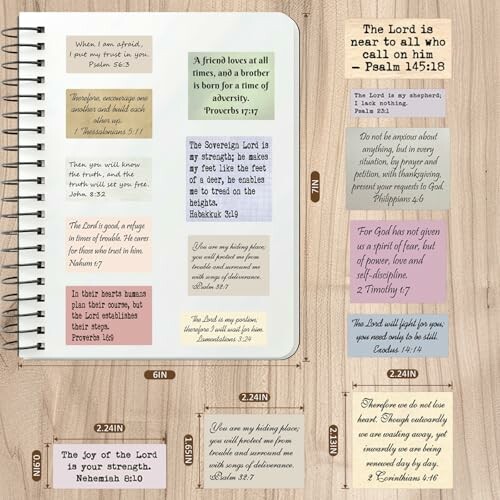 When I am afraid,
I put my trust in you.
Psalm 56:3
Therefore, encourage one
another and build each
other up.
1 Thessalonians 5:11
Then you will know
the truth, and the
truth will set you free.
John 8:32
The Lord is good, a refuge
in times of trouble. He cares
for those who trust in him.
Nahum 1:7
In their hearts humans
plan their course, but
the Lord establishes
their steps.
Proverbs 16:9
A friend loves at all
times, and a brother
is born for a time of
adversity.
Proverbs 17:17
The Sovereign Lord is
my strength; he makes
my feet like the feet
of a deer, he enables
me to tread on the
heights.
Habakkuk 3:19
You are my hiding place;
you will protect me from
trouble and surround me
with songs of deliverance.
Psalm 32:7
The Lord is my portion;
therefore I will wait for him.
Lamentations 3:24
7IN
6IN
The Lord is
near to all who
call on him
— Psalm 145:18
The Lord is my shepherd;
I lack nothing.
Psalm 23:1
Do not be anxious about
anything, but in every
situation, by prayer and
petition, with thanksgiving,
present your requests to God.
Philippians 4:6
For God has not given
us a spirit of fear, but
of power, love and
self-discipline.
2 Timothy 1:7
The Lord will fight for you;
you need only to be still.
Exodus 14:14
2.24IN
0.9IN
The joy of the Lord
is your strength.
Nehemiah 8:10
2.24IN
1.65IN
You are my hiding place;
you will protect me from
trouble and surround me
with songs of deliverance.
Psalm 32:7
2.24IN
2.13IN
Therefore we do not lose
heart. Though outwardly
we are wasting away, yet
inwardly we are being
renewed day by day.
2 Corinthians 4:16